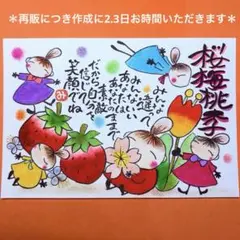 ＊再販につき作成に2.3日お時間いただきます＊
桜梅桃李
みんな違って
みんないい
あなたは
あなたのままで
素敵
だから自分
笑顔でね